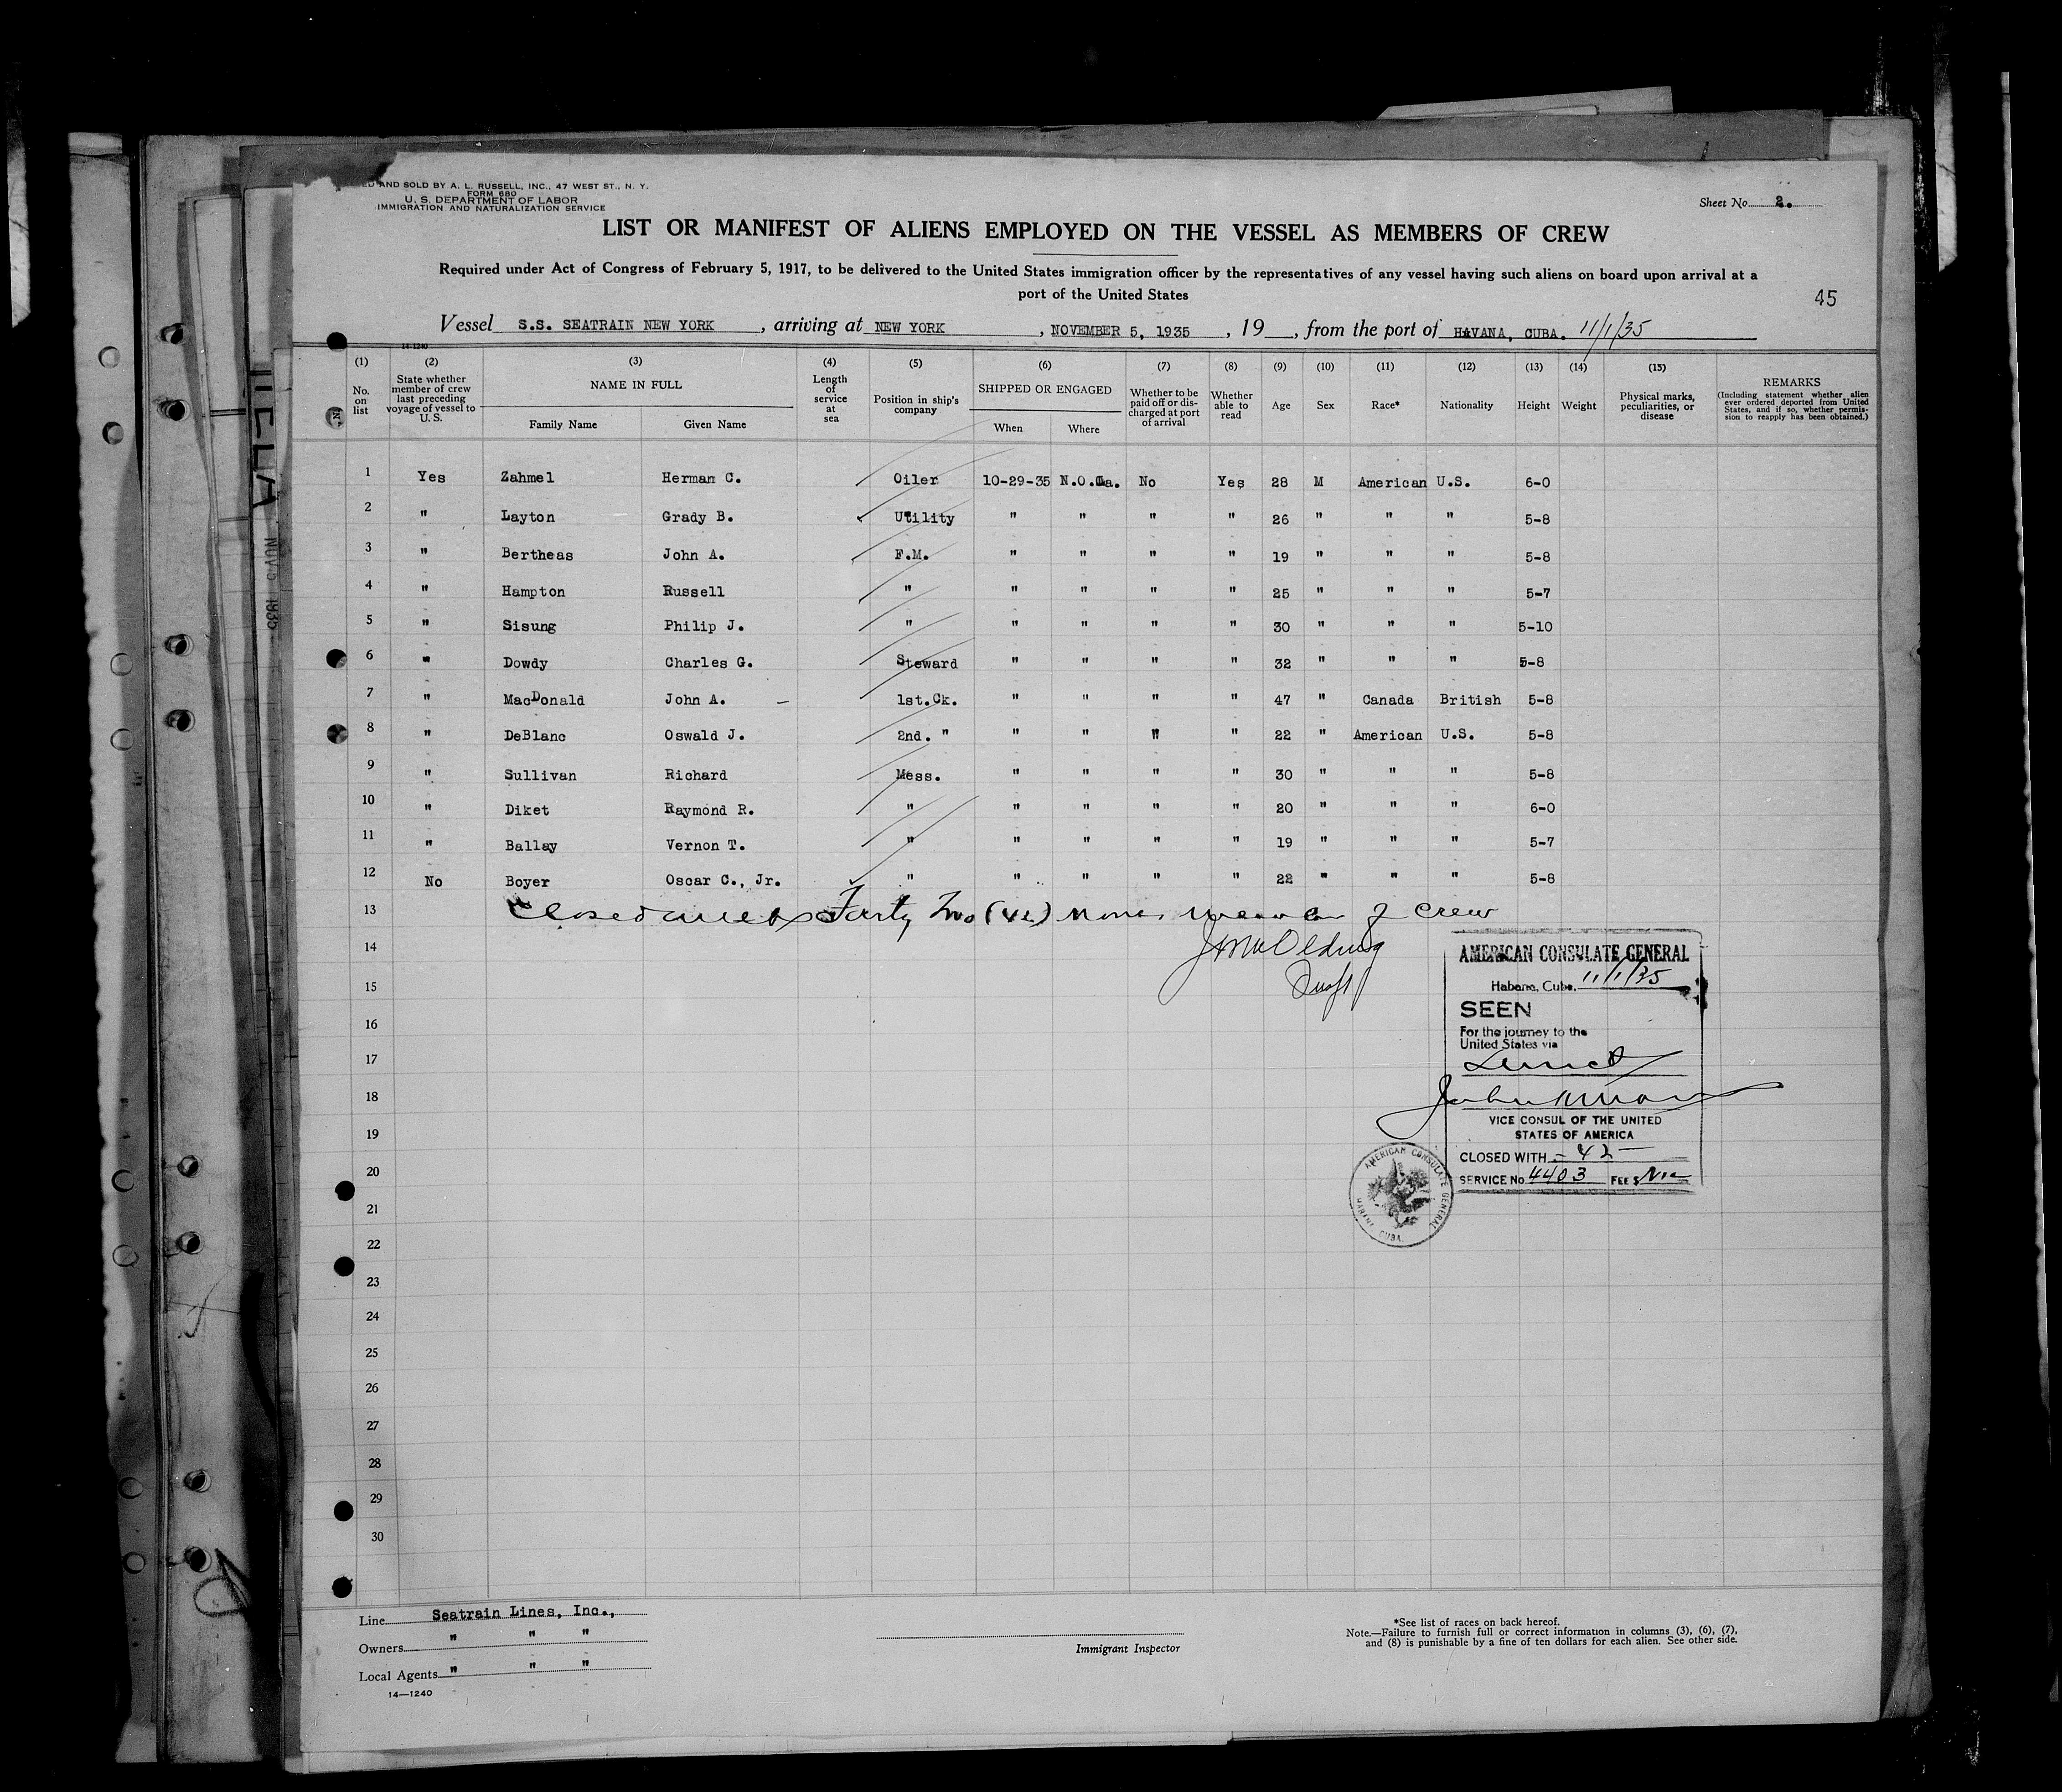 ED AND SOLD BY A. L. RUSSELL, INC., 47 WEST ST., N. Y.
FORM 680
U. S. DEPARTMENT OF LABOR
IMMIGRATION AND NATURALIZATION SERVICE
Sheet No. 2.
LIST OR MANIFEST OF ALIENS EMPLOYED ON THE VESSEL AS MEMBERS OF CREW
Required under Act of Congress of February 5, 1917, to be delivered to the United States immigration officer by the representatives of any vessel having such aliens on board upon arrival at a
port of the United States
45
Vessel S.S. SEATRAIN NEW YORK, arriving at NEW YORK, NOVEMBER 5, 1935, 19__, from the port of HAVANA, CUBA. 11/1/35
14-1240
(1) (2) (3) (4) (5) (6) (7) (8) (9) (10) (11) (12) (13) (14) (15)
No. on list | State whether member of crew last preceding voyage of vessel to U. S. | NAME IN FULL | Length of service at sea | Position in ship's company | SHIPPED OR ENGAGED | Whether to be paid off or discharged at port of arrival | Whether able to read | Age | Sex | Race* | Nationality | Height | Weight | Physical marks, peculiarities, or disease | REMARKS (Including statement whether alien ever ordered deported from United States, and if so, whether permission to reapply has been obtained.)
Family Name | Given Name | When | Where
1 Yes Zahmel Herman C. Oiler 10-29-35 N.O.La. No Yes 28 M American U.S. 6-0
2 " Layton Grady B. Utility " " " " 26 " " " 5-8
3 " Bertheas John A. F.M. " " " " 19 " " " 5-8
4 " Hampton Russell " " " " " 25 " " " 5-7
5 " Sisung Philip J. " " " " " 30 " " " 5-10
6 " Dowdy Charles G. Steward " " " " 32 " " " 5-8
7 " MacDonald John A. – 1st.Ck. " " " " 47 " Canada British 5-8
8 " DeBlanc Oswald J. 2nd. " " " " " 22 " American U.S. 5-8
9 " Sullivan Richard Mess. " " " " 30 " " " 5-8
10 " Diket Raymond R. " " " " " 20 " " " 6-0
11 " Ballay Vernon T. " " " " " 19 " " " 5-7
12 No Boyer Oscar C., Jr. " " " " " 22 " " " 5-8
13 Closed Forty Two (42) of crew
14
15
16
17
18
19
20
21
22
23
24
25
26
27
28
29
30
AMERICAN CONSULATE GENERAL
Habana, Cuba, 11/1/35
SEEN
For the journey to the
United States via
Direct
VICE CONSUL OF THE UNITED
STATES OF AMERICA
CLOSED WITH - 42 -
SERVICE No. 4403 FEE $ Nil
AMERICAN CONSULATE GENERAL
HABANA, CUBA.
Line Seatrain Lines, Inc.,
Owners " " "
Local Agents " " "
14—1240
Immigrant Inspector
*See list of races on back hereof.
Note.—Failure to furnish full or correct information in columns (3), (6), (7),
and (8) is punishable by a fine of ten dollars for each alien. See other side.
NOV 5 1935